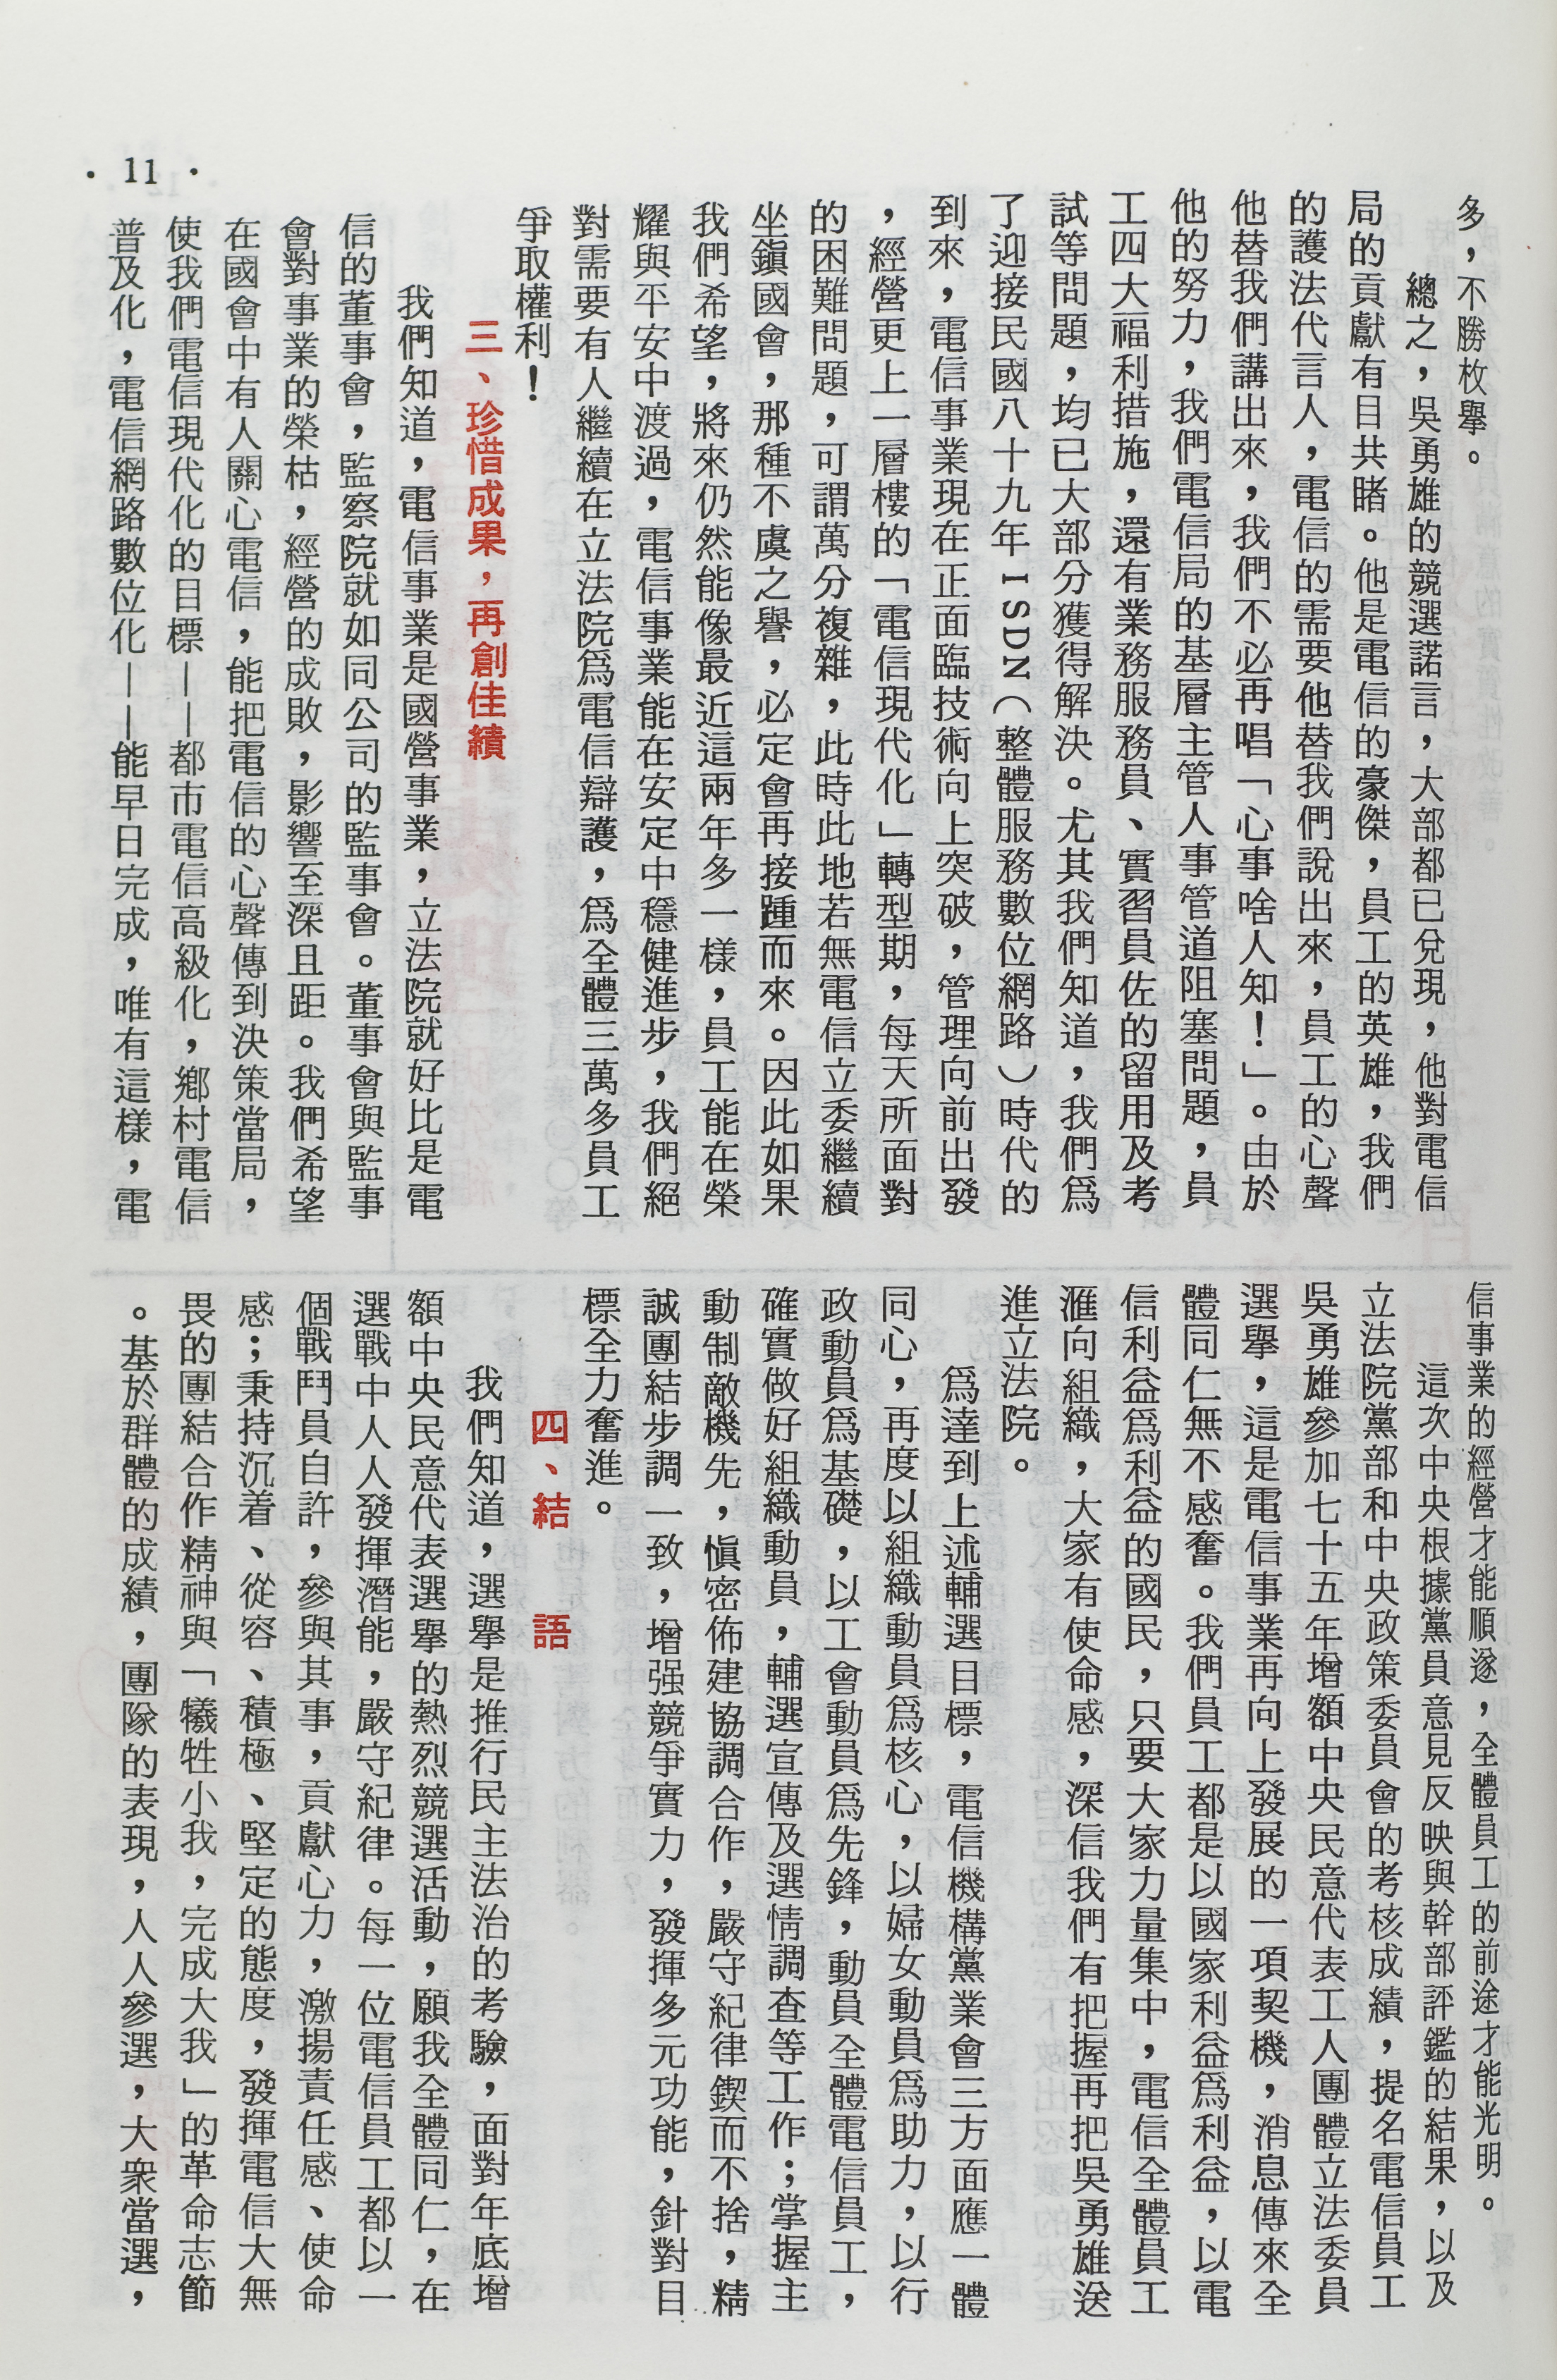 多，不勝枚舉。
總之，吳勇雄的競選諾言，大部都已兌現，他對電信
局的貢獻有目共睹。他是電信的豪傑，員工的英雄，我們
的護法代言人，電信的需要他替我們說出來，員工的心聲
他替我們講出來，我們不必再唱「心事啥人知！」。由於
他的努力，我們電信局的基層主管人事管道阻塞問題，員
工四大福利措施，還有業務服務員、實習員佐的留用及考
試等問題，均已大部分獲得解決。尤其我們知道，我們爲
了迎接民國八十九年ISDN（整體服務數位網路）時代的
到來，電信事業現在正面臨技術向上突破，管理向前出發
，經營更上一層樓的「電信現代化」轉型期，每天所面對
的困難問題，可謂萬分複雜，此時此地若無電信立委繼續
坐鎭國會，那種不虞之譽，必定會再接踵而來。因此如果
我們希望，將來仍然能像最近這兩年多一樣，員工能在榮
耀與平安中渡過，電信事業能在安定中穩健進步，我們絕
對需要有人繼續在立法院爲電信辯護，爲全體三萬多員工
爭取權利！
三、珍惜成果，再創佳績
我們知道，電信事業是國營事業，立法院就好比是電
信的董事會，監察院就如同公司的監事會。董事會與監事
會對事業的榮枯，經營的成敗，影響至深且距。我們希望
在國會中有人關心電信，能把電信的心聲傳到決策當局，
使我們電信現代化的目標——都市電信高級化，鄉村電信
普及化，電信網路數位化——能早日完成，唯有這樣，電
信事業的經營才能順遂，全體員工的前途才能光明。
這次中央根據黨員意見反映與幹部評鑑的結果，以及
立法院黨部和中央政策委員會的考核成績，提名電信員工
吳勇雄參加七十五年增額中央民意代表工人團體立法委員
選舉，這是電信事業再向上發展的一項契機，消息傳來全
體同仁無不感奮。我們員工都是以國家利益爲利益，以電
信利益爲利益的國民，只要大家力量集中，電信全體員工
滙向組織，大家有使命感，深信我們有把握再把吳勇雄送
進立法院。
爲達到上述輔選目標，電信機構黨業會三方面應一體
同心，再度以組織動員爲核心，以婦女動員爲助力，以行
政動員爲基礎，以工會動員爲先鋒，動員全體電信員工，
確實做好組織動員，輔選宣傳及選情調查等工作；掌握主
動制敵機先，愼密佈建協調合作，嚴守紀律鍥而不捨，精
誠團結步調一致，增强競爭實力，發揮多元功能，針對目
標全力奮進。
四、結　語
我們知道，選舉是推行民主法治的考驗，面對年底增
額中央民意代表選舉的熱烈競選活動，願我全體同仁，在
選戰中人人發揮潛能，嚴守紀律。每一位電信員工都以一
個戰鬥員自許，參與其事，貢獻心力，激揚責任感、使命
感；秉持沉着、從容、積極、堅定的態度，發揮電信大無
畏的團結合作精神與「犧牲小我，完成大我」的革命志節
。基於群體的成績，團隊的表現，人人參選，大衆當選，
· 11 ·